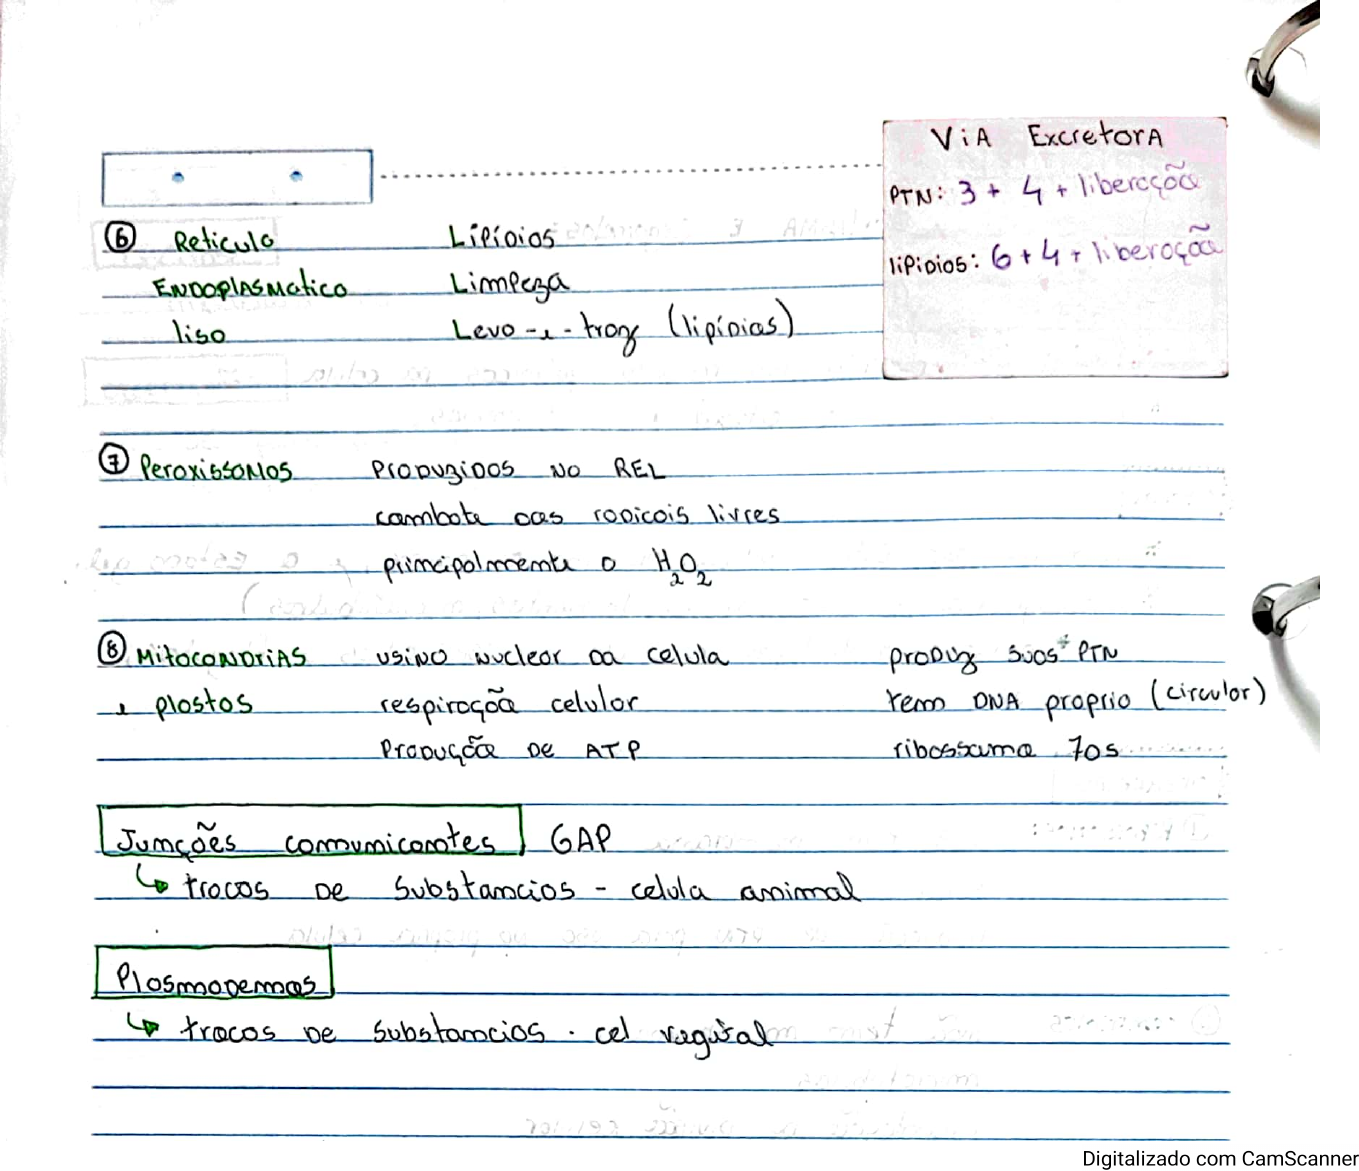 Via Excretora
PTN: 3 + 4 + liberação
lipidios: 6 + 4 + liberação
⑥ Reticulo Lipídios
Endoplasmatico Limpeza
liso Leva-e-traz (lipídios)
⑦ Peroxissomos Produzidos no REL
combate aos radicais livres
principalmente o H₂O₂
⑧ Mitocondrias usina nuclear da celula produz suas PTN
e plastos respiração celular tem DNA proprio (circular)
Produção de ATP ribossomo 70s
Junções comunicantes GAP
↳ trocas de substancias - celula animal
Plasmodemas
↳ trocas de substancias - cel vegetal
Digitalizado com CamScanner